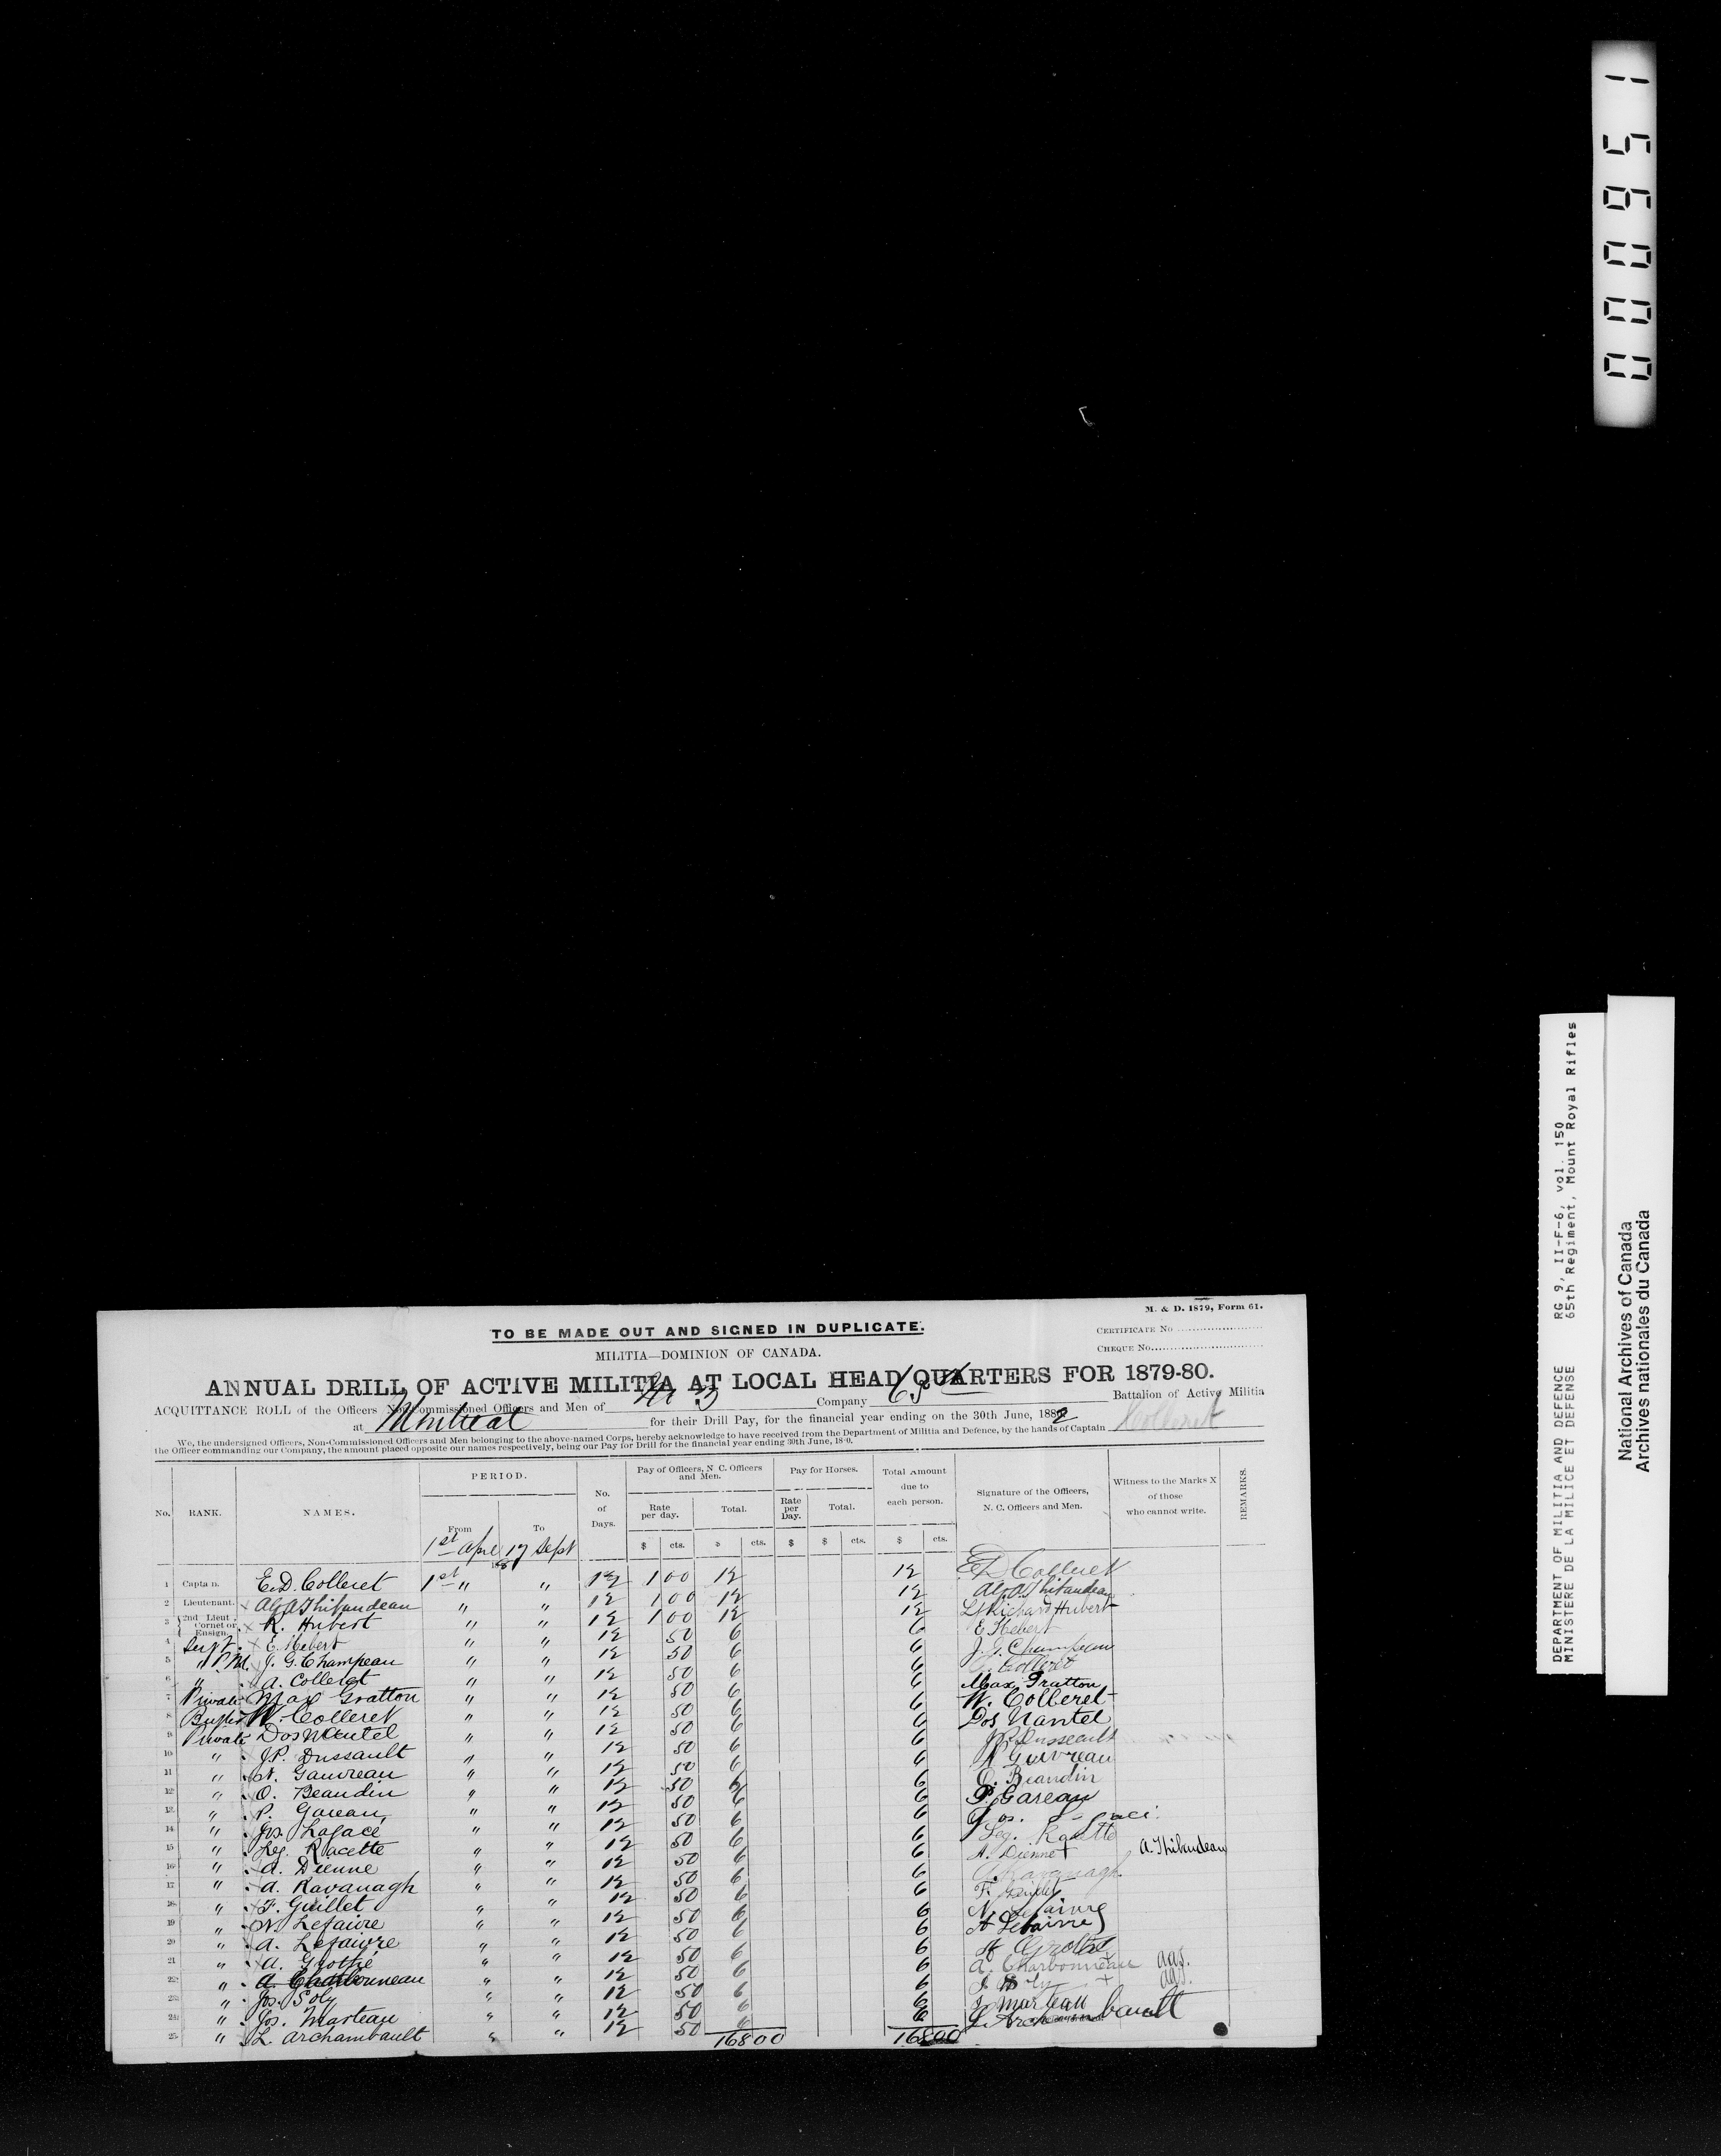 000951
DEPARTMENT OF MILITIA AND DEFENCE RG 9, II-F-6, vol. 150
MINISTERE DE LA MILICE ET DEFENSE 65th Regiment, Mount Royal Rifles
National Archives of Canada
Archives nationales du Canada
M. & D. 1879, Form 61.
TO BE MADE OUT AND SIGNED IN DUPLICATE.
CERTIFICATE No
MILITIA—DOMINION OF CANADA.
CHEQUE No.
ANNUAL DRILL OF ACTIVE MILITIA AT LOCAL HEAD QUARTERS FOR 1879-80.
ACQUITTANCE ROLL of the Officers Non-Commissioned Officers and Men of No 3 Company 65th Battalion of Active Militia
at Montreal for their Drill Pay, for the financial year ending on the 30th June, 1882
We, the undersigned Officers, Non-Commissioned Officers and Men belonging to the above-named Corps, hereby acknowledge to have received from the Department of Militia and Defence, by the hands of Captain Colleret
the Officer commanding our Company, the amount placed opposite our names respectively, being our Pay for Drill for the financial year ending 30th June, 18-0.
No. RANK. NAMES. PERIOD. No. of Days. Pay of Officers, N. C. Officers and Men. Pay for Horses. Total Amount due to each person. Signature of the Officers, N. C. Officers and Men. Witness to the Marks X of those who cannot write. REMARKS.
From To Rate per day. Total. Rate per Day. Total.
1st Apl 17 Sept $ cts. $ cts. $ $ cts. $ cts.
1 Captain. E.D. Colleret 1st " " 12 1 00 12 12 E D Colleret
2 Lieutenant. Alf A Thibaudeau " " 12 1 00 12 12 Alf. A. Thibaudeau
3 2nd Lieut. Cornet or Ensign. R. Hubert " " 12 1 00 12 12 Richard Hubert
4 Sergt. E. Hebert " " 12 50 6 6 E Hebert
5 " P.M. J. G. Champeau " " 12 50 6 6 J. G. Champeau
6 " A. Colleret " " 12 50 6 6 Colleret
7 Private Max Gratton " " 12 50 6 6 Max Gratton
8 Bugler W. Colleret " " 12 50 6 6 W. Colleret
9 Private Dos Nantel " " 12 50 6 6 Dos Nantel
10 " J.P. Dussault " " 12 50 6 6 J.P. Dusseault
11 " N. Gauvreau " " 12 50 6 6 Gauvreau
12 " O. Beaudin " " 12 50 6 6 O. Beaudin
13 " P. Gareau " " 12 50 6 6 P. Gareau
14 " Jos. Lagacé " " 12 50 6 6 Jos.
15 " Leg. Racette " " 12 50 6 6 Leg. Racette
16 " A. Dienne " " 12 50 6 6 A. Dienne + A. Thibaudeau
17 " A. Kavanagh " " 12 50 6 6 A. Kavanagh
18 " F. Guillet " " 12 50 6 6 F. Guillet
19 " N. Lefaivre " " 12 50 6 6 N. Lefaivre
20 " A. Lefaivre " " 12 50 6 6 A Lefaivre
21 " A. Grothé " " 12 50 6 6 A Grothé
22 " A. Charbonneau " " 12 50 6 6 A. Charbonneau
23 " Jos. Soly " " 12 50 6 6 J. Soly +
24 " Jos. Marteau " " 12 50 6 6 J Marteau
25 " L. Archambault " " 12 50 6 6 L. Archambault
168 00 168 00